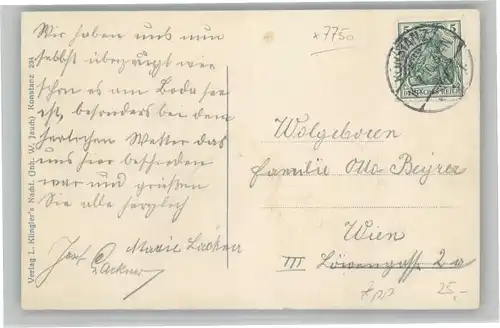 Wir haben uns nun
selbst überzeugt wie
schön es am Boda see
ist, besonders bei dem
herlichen Wetter das
uns hier beschieden
war und grüßen
Sie alle herzlich
Marie Lackner
Lackner
Verlag L. Klingler's Nachf. (Inh. W. Jauch) Konstanz 284
x7750
5 5
KONSTANZ
DEUTSCHES REICH
Wolgeboren
Familie Otto
Wien
III Löwengasse 2a
25,-